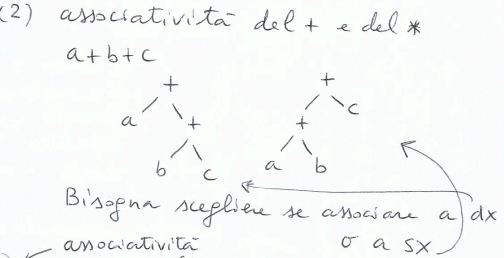 (2) associatività del + e del *
a+b+c
+ +
a + + c
b c a b
Bisogna scegliere se associare a dx
o a sx
associatività